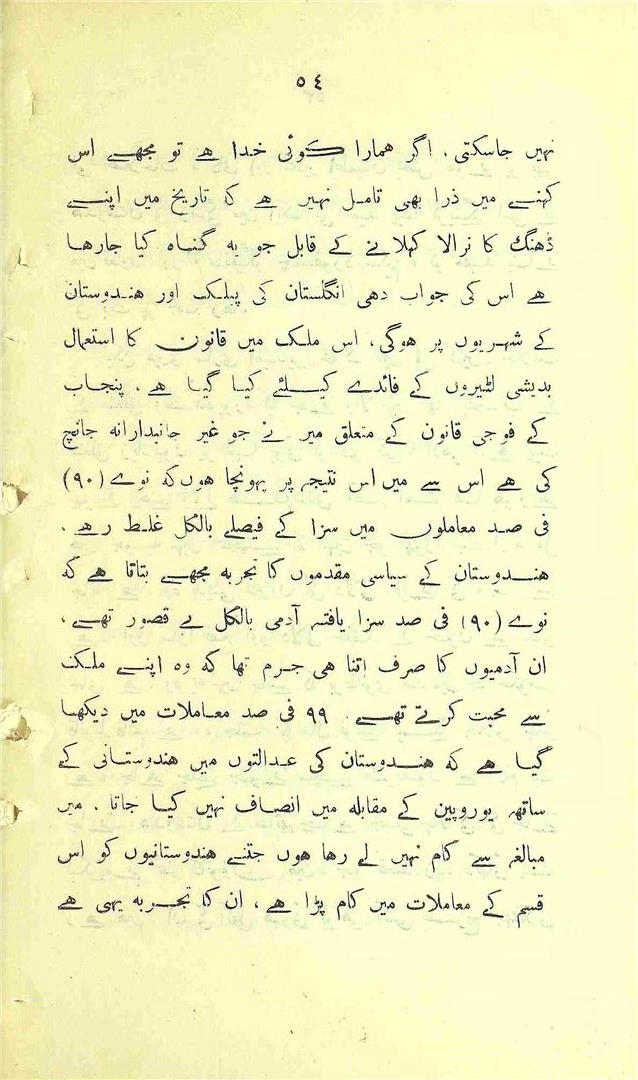 ٥٤
نہیں جاسکتی. اگر ھمارا کوئی خدا ھے تو مجھے اس
کہنے میں ذرا بھی تامل نہیں ھے کا تاریخ میں اپنے
ڈھنگ کا نرالا کہلانے کے قابل جو یہ گناہ کیا جارھا
ھے اس کی جواب دھی انگلستان کی پبلک اور ھندوستان
کے شہریوں پر ھوگی. اس ملک میں قانون کا استعمال
بدیشی لٹیروں کے فائدے کیلئے کیا گیا ھے. پنجاب
کے فوجی قانون کے متعلق میں نے جو غیر جانبدارانہ جانچ
کی ھے اس سے میں اس نتیجہ پر پہونچا ھوں کہ نوے (۹۰)
فی صد معاملوں میں سزا کے فیصلے بالکل غلط رھے.
ھندوستان کے سیاسی مقدموں کا تجربہ مجھے بتاتا ھے کہ
نوے (۹۰) فی صد سزا یافتہ آدمی بالکل بے قصور تھے،
ان آدمیوں کا صرف اتنا ھی جرم تھا کہ وہ اپنے ملک
سے محبت کرتے تھے. ۹۹ فی صد معاملات میں دیکھا
گیا ھے کہ ھندوستان کی عدالتوں میں ھندوستانی کے
ساتھ یوروپین کے مقابلہ میں انصاف نہیں کیا جاتا. میں
مبالغہ سے کام نہیں لے رھا ھوں جتنے ھندوستانیوں کو اس
قسم کے معاملات میں کام پڑا ھے، ان کا تجربہ یہی ھے